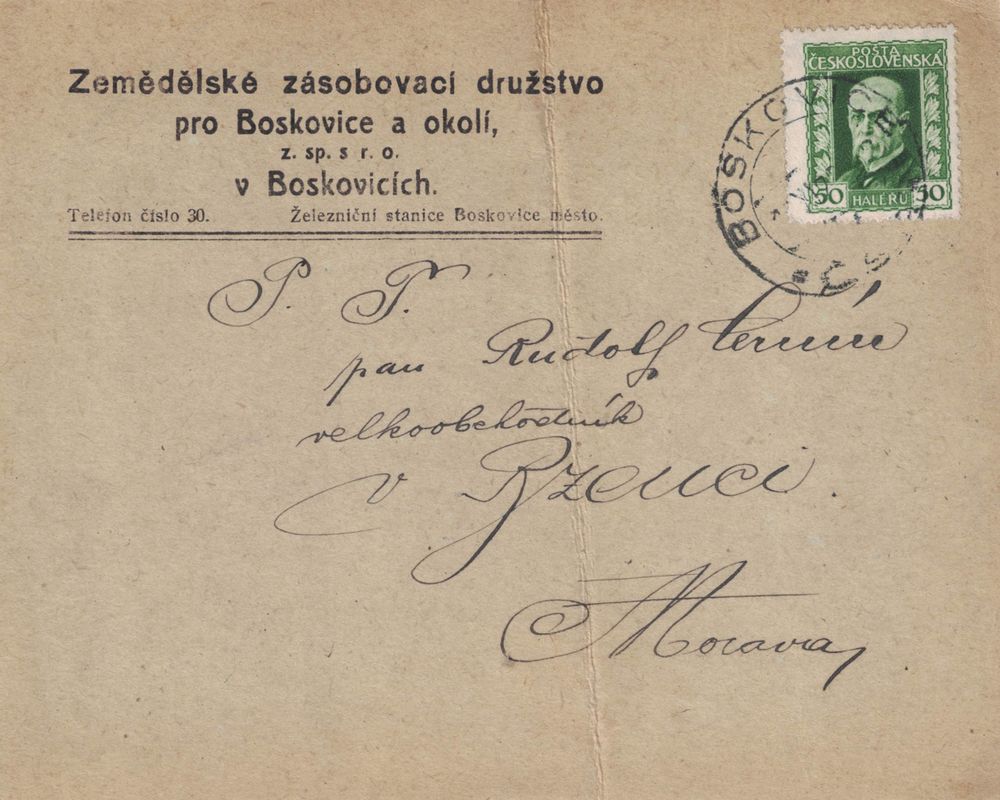 Zemědělské zásobovací družstvo
pro Boskovice a okolí,
z. sp. s r. o.
v Boskovicích.
Telefon číslo 30. Železniční stanice Boskovice město.
POŠTA
ČESKOSLOVENSKÁ
50 HALÉŘŮ 50
BOSKOV
P. T.
pan Rudolf
velkoobchodník
v Bzenci.
Morava